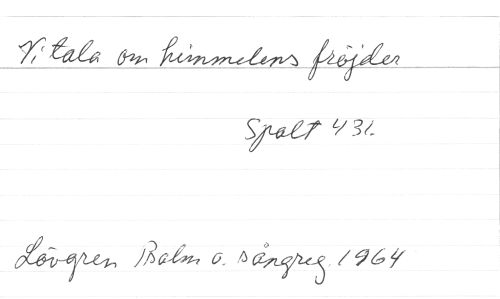 Vi tala om himmelens fröjder
Spalt 431.
Lövgren Psalm o. sångreg. 1964